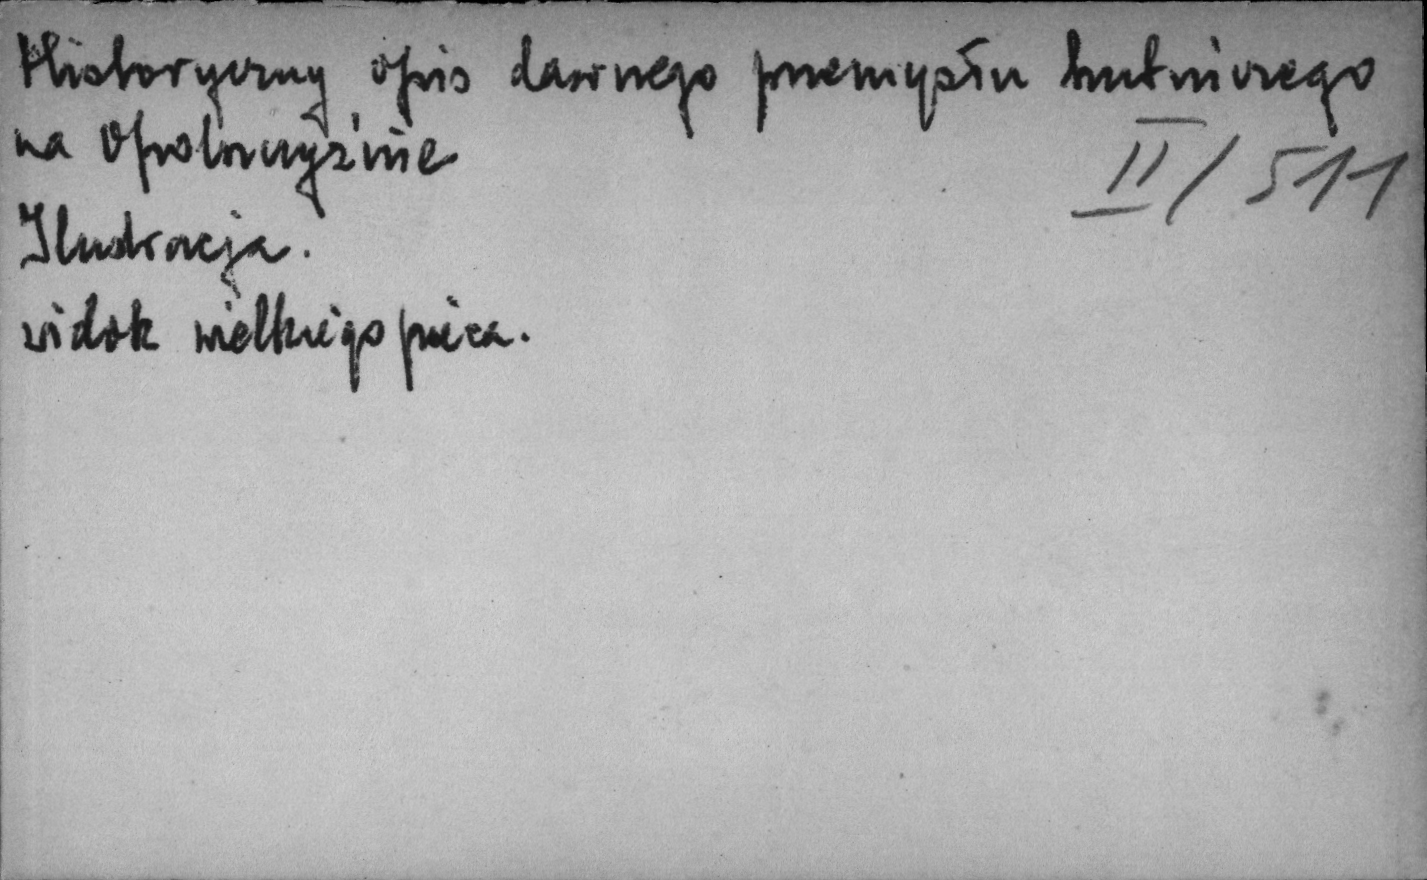 Historyczny opis dawnego przemysłu hutniczego
na Opolszczyźnie
II/511
Ilustracja.
widok wielkiego pieca.